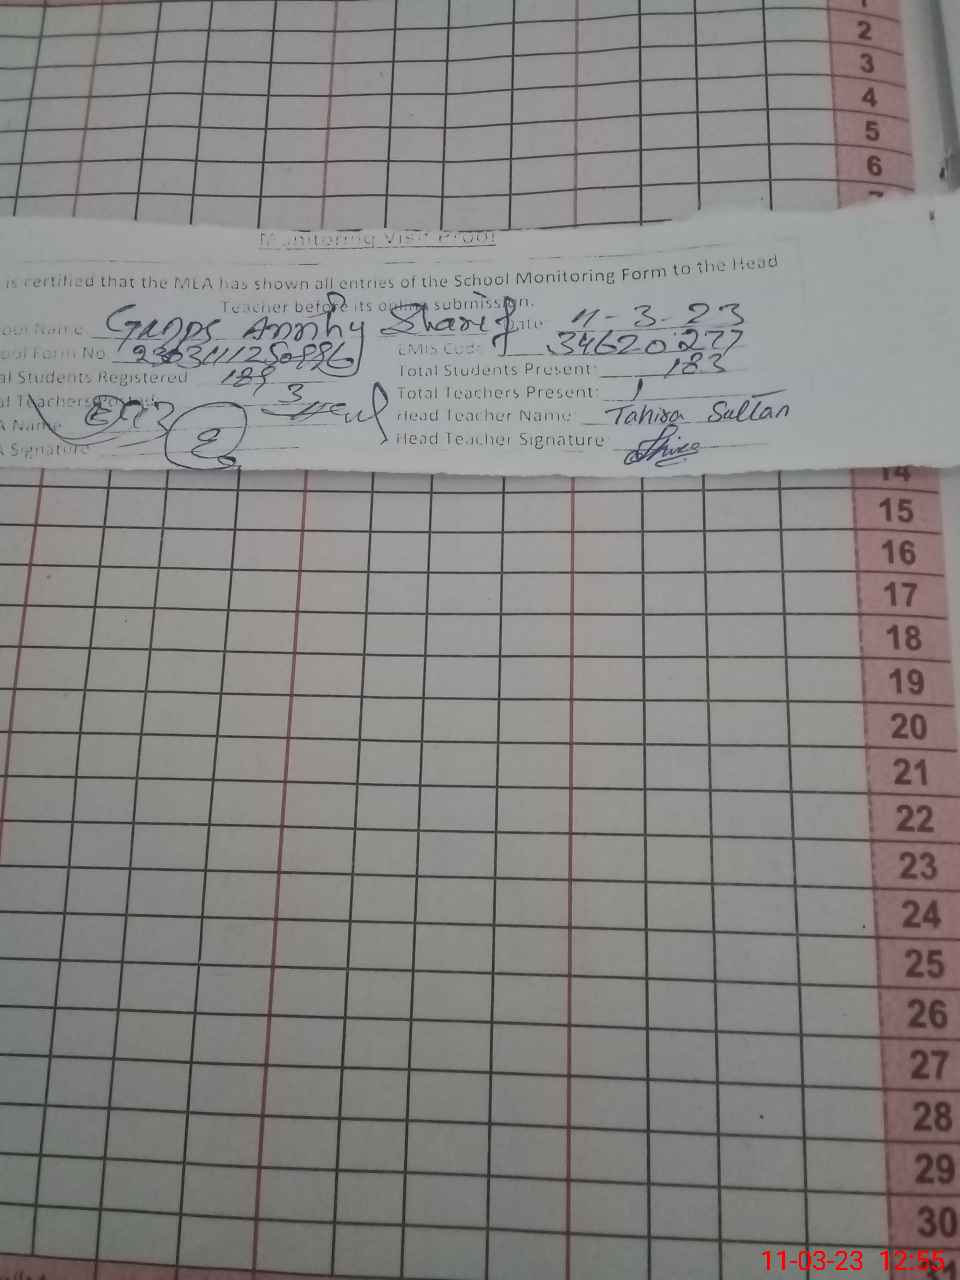 1
2
3
4
5
6
7
Monitoring Visit Proof
is certified that the MEA has shown all entries of the School Monitoring Form to the Head
Teacher before its online submission.
ool Name Sharif Date 11-3-23
ool Form No. EMIS Code 34620277
al Students Registered 189 Total Students Present: 183
al Teachers Posted: 3 Total Teachers Present: 1
A Name Head Teacher Name Tahira Sultan
A Signature Head Teacher Signature
14
15
16
17
18
19
20
21
22
23
24
25
26
27
28
29
30
31
11-03-23 12:55